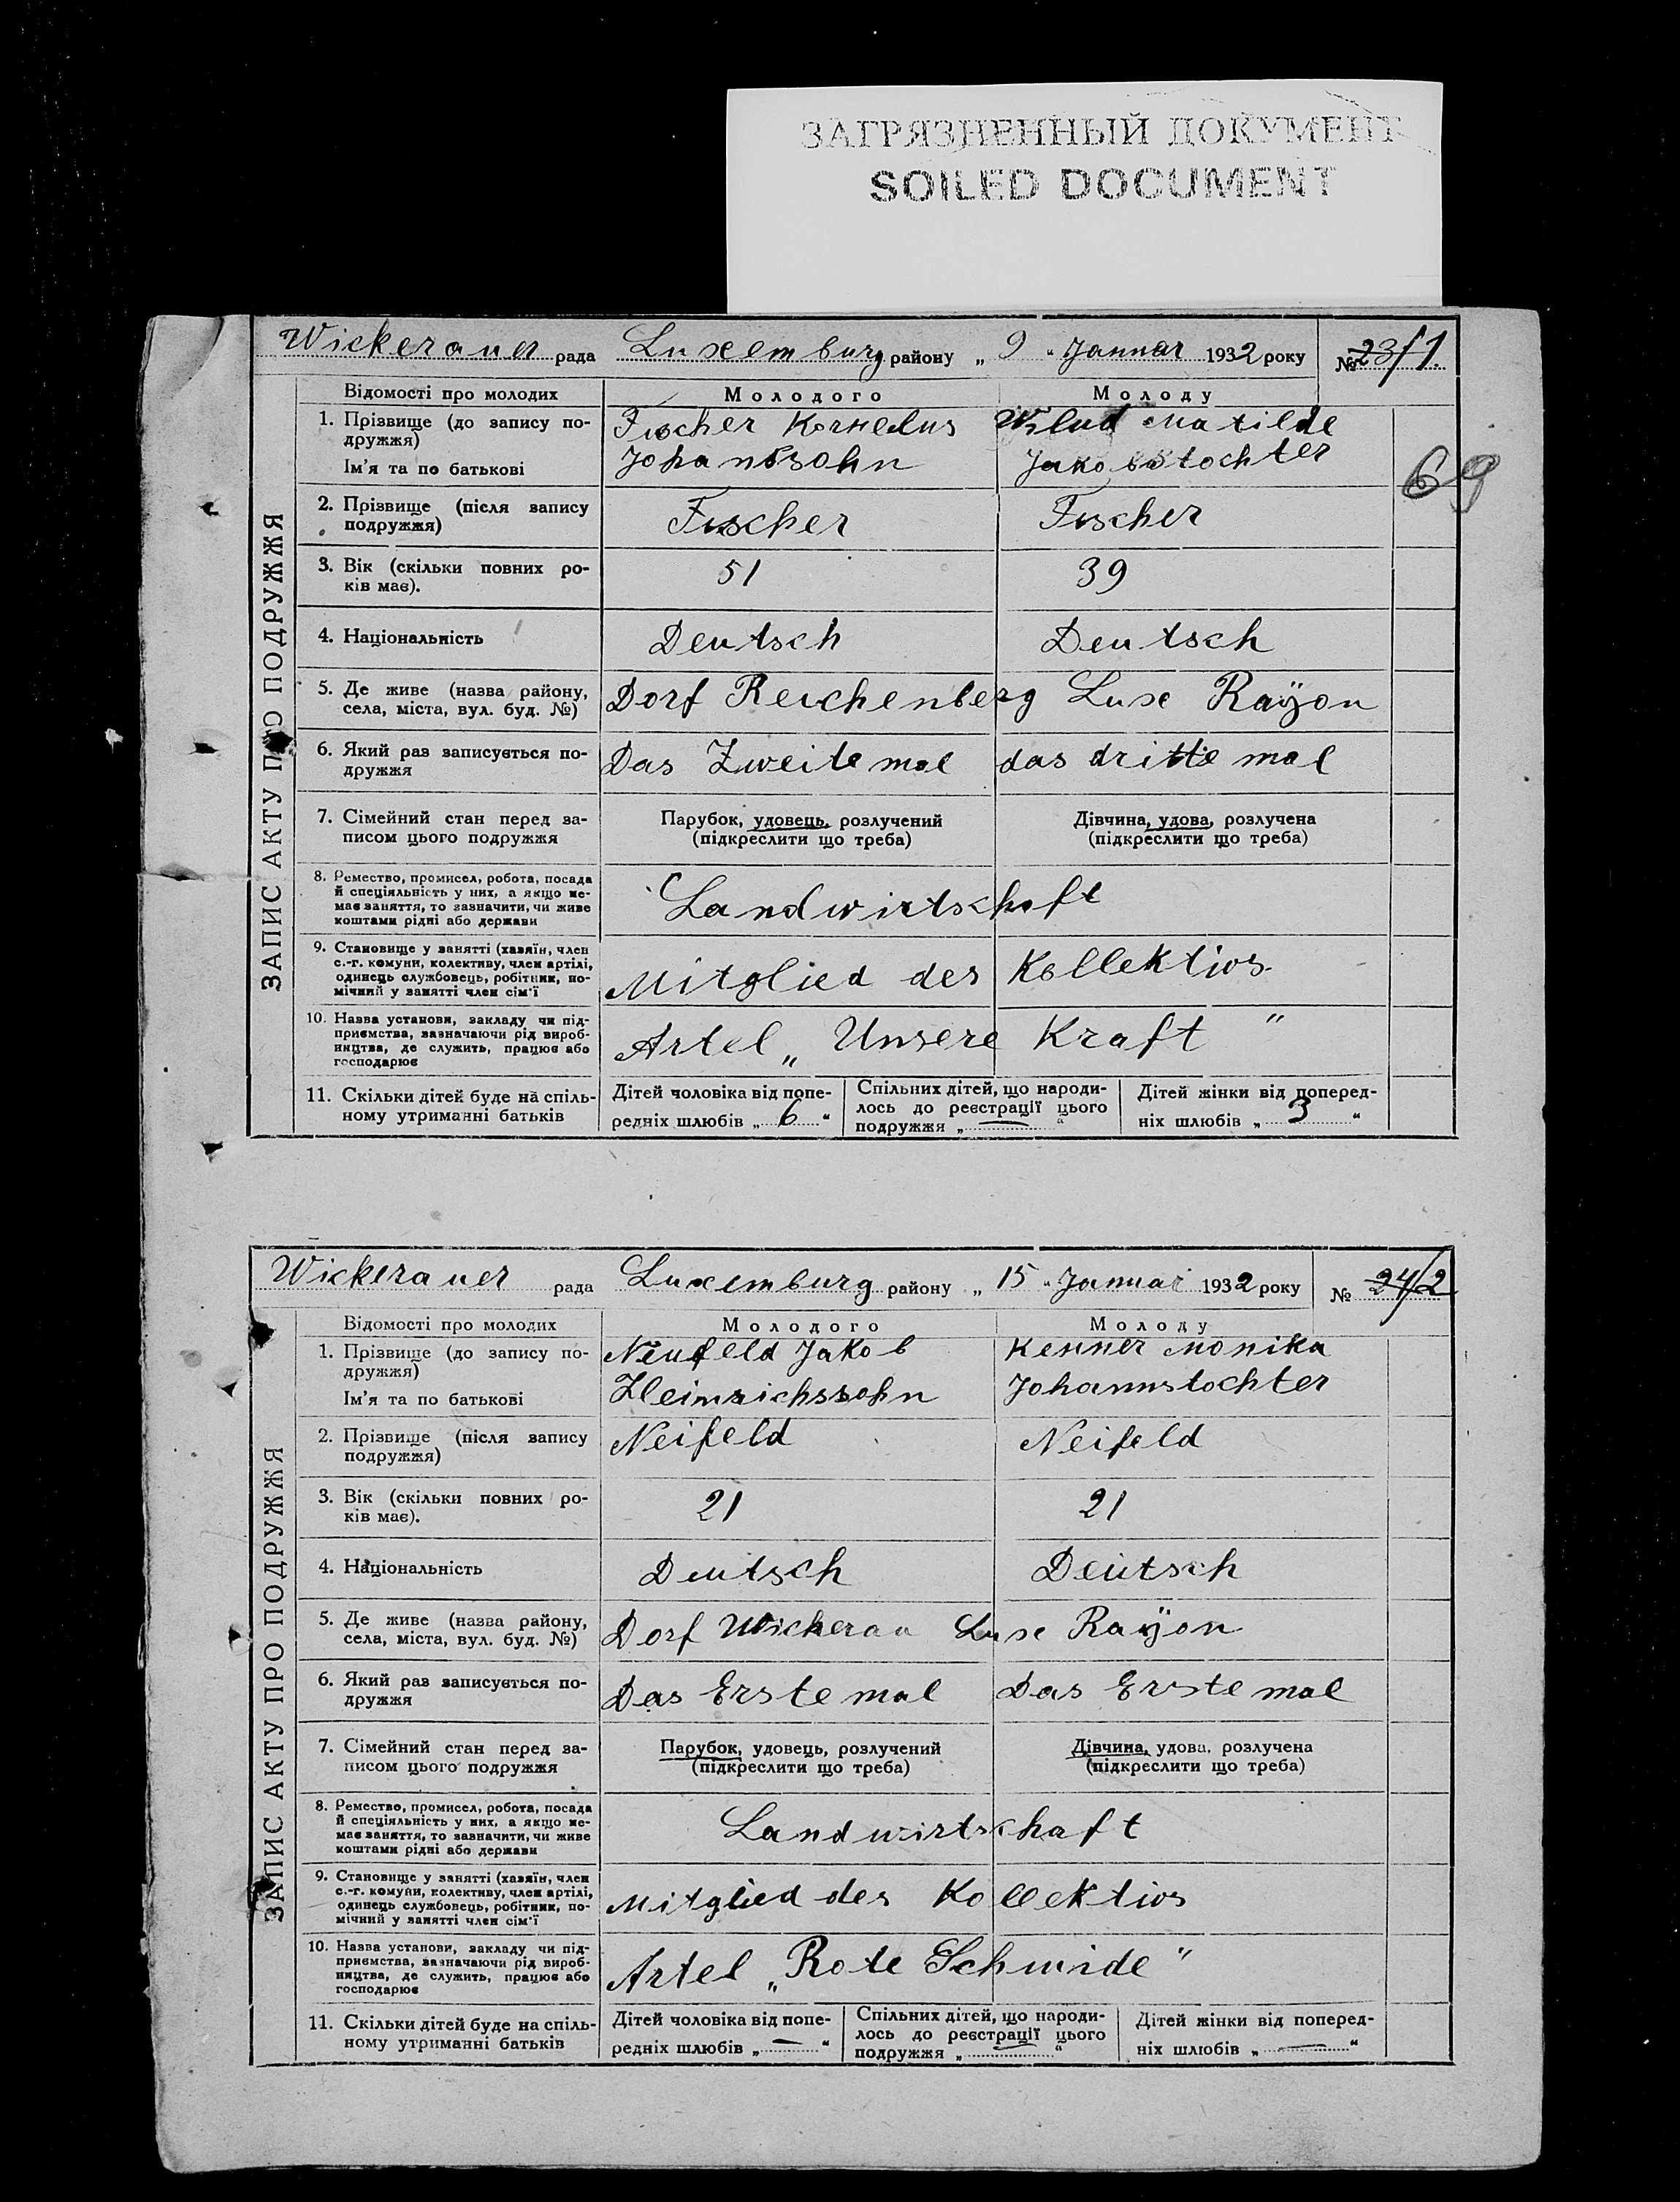 ЗАГРЯЗНЕННЫЙ ДОКУМЕНТ
SOILED DOCUMENT
Wickerauer рада Luxemburg району „ 9 " Januar 1932 року № 23/1.
ЗАПИС АКТУ ПРО ПОДРУЖЖЯ
Відомості про молодих Молодого Молоду
1. Прізвище (до запису по- Fischer Kornelius Matilde
дружжя)
Ім'я та по батькові Johanssohn Jakobstochter
69
2. Прізвище (після запису Fischer Fischer
подружжя)
3. Вік (скільки повних ро- 51 39
ків має).
4. Національність Deutsch Deutsch
5. Де живе (назва району, Dorf Reichenberg Luxe Rayon
села, міста, вул. буд. №)
6. Який раз записується по- Das Zweite mal das dritte mal
дружжя
7. Сімейний стан перед за- Парубок, удовець, розлучений Дівчина, удова, розлучена
писом цього подружжя (підкреслити що треба) (підкреслити що треба)
8. Ремество, промисел, робота, посада
й спеціяльність у них, а якщо не-
має заняття, то зазначити, чи живе Landwirtschaft
коштами рідні або держави
9. Становище у занятті (хазяїн, член
с.-г. комуни, колективу, член артілі,
одинець службовець, робітник, по- Mitglied des Kollektivs
мічний у занятті член сім'ї
10. Назва установи, закладу чи під-
приємства, зазначаючи рід вироб- Artel „Unsere Kraft"
ництва, де служить, працює або
господарює
11. Скільки дітей буде на спіль- Дітей чоловіка від попе- Спільних дітей, що народи- Дітей жінки від поперед-
ному утриманні батьків редніх шлюбів „ 6 " лось до реєстрації цього ніх шлюбів „ 3 "
подружжя „ — "
Wickerauer рада Luxemburg району „ 15 " Januar 1932 року № 24/2
ЗАПИС АКТУ ПРО ПОДРУЖЖЯ
Відомості про молодих Молодого Молоду
1. Прізвище (до запису по- Neufeld Jakob Kenner Monika
дружжя)
Ім'я та по батькові Heinrichssohn Johannstochter
2. Прізвище (після запису Neifeld Neifeld
подружжя)
3. Вік (скільки повних ро- 21 21
ків має).
4. Національність Deutsch Deutsch
5. Де живе (назва району, Dorf Wickerau Luxe Rayon
села, міста, вул. буд. №)
6. Який раз записується по- Das Erste mal Das Erste mal
дружжя
7. Сімейний стан перед за- Парубок, удовець, розлучений Дівчина, удова, розлучена
писом цього подружжя (підкреслити що треба) (підкреслити що треба)
8. Ремество, промисел, робота, посада
й спеціяльність у них, а якщо не-
має заняття, то зазначити, чи живе Landwirtschaft
коштами рідні або держави
9. Становище у занятті (хазяїн, член
с.-г. комуни, колективу, член артілі,
одинець службовець, робітник, по- Mitglied des Kollektivs
мічний у занятті член сім'ї
10. Назва установи, закладу чи під-
приємства, зазначаючи рід вироб- Artel „Rote Schmide"
ництва, де служить, працює або
господарює
11. Скільки дітей буде на спіль- Дітей чоловіка від попе- Спільних дітей, що народи- Дітей жінки від поперед-
ному утриманні батьків редніх шлюбів „ — " лось до реєстрації цього ніх шлюбів „ — "
подружжя „ — "